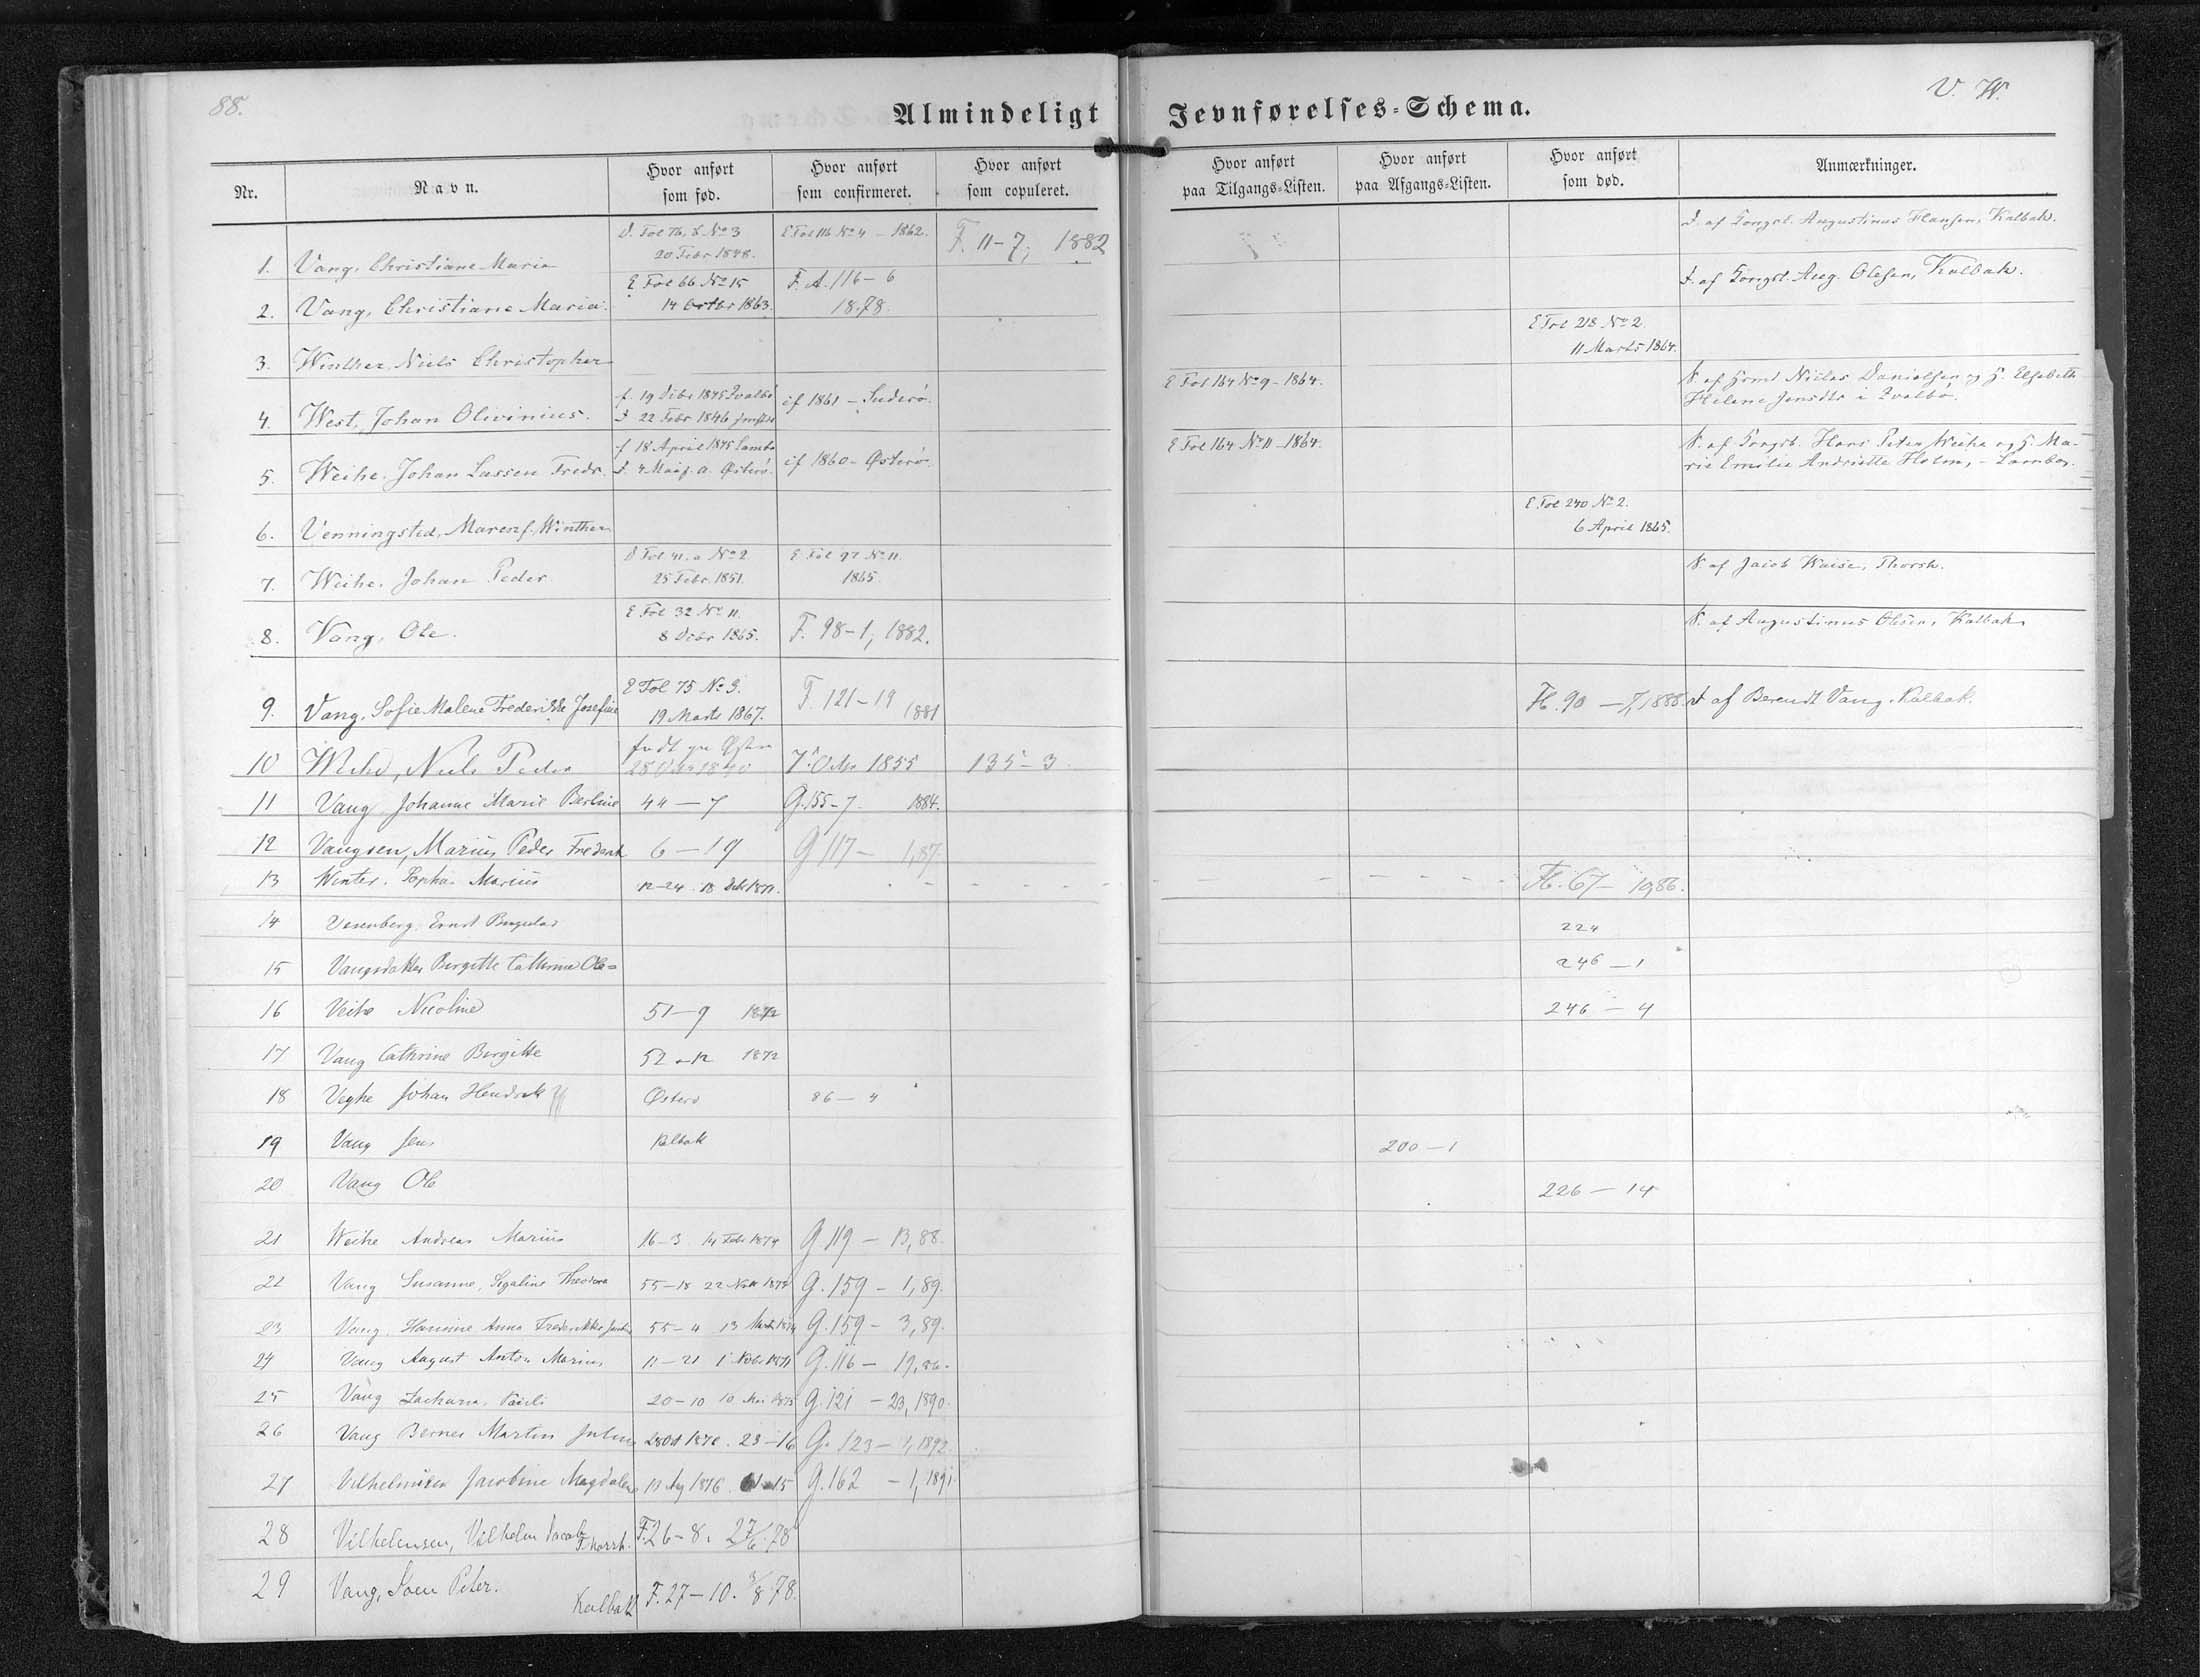 88.
Almindeligt Jevnførelses-Schema.
V. W.
Nr. Navn. Hvor anført som fød. Hvor anført som confirmeret. Hvor anført som copuleret. Hvor anført paa Tilgangs-Listen. Hvor anført paa Afgangs-Listen. Hvor anført som død. Anmærkninger.
D. Fol 76. b No 3 E Fol 116 No 4 - 1862. F. 11-7, 1882 D. af Augustinus Hansen, Kalbak.
1. Vang, Christiane Maria 20 Febr 1848.
E Fol 66. No 15 F. A. 116-6 D. af Aug. Olesen, Kalbak.
2. Vang, Christiane Maria. 14 Octbr 1863. 1878.
E Fol 218 No 2.
3. Winther, Niels Christopher 11 Marts 1864.
f. 19 Decbr 1845 Qvalbø E Fol 164 No 9 - 1864. S. af Niclas Danielsen og H. Elsebeth
4. West, Johan Olivinius. D 22 Febr 1846 if 1861 - Suderø. Helene Jensdtr i Qvalbø.
f 18 April 1845 Lambo E Fol 164 No 11 - 1864. S. af Hans Peter Weihe og H. Ma-
5. Weihe, Johan Lassen Fredr. D. 4 Mai s. a. Østerø. if 1860 - Østerø. rie Emilie Andriette Holm, - Lamboe.
E Fol 240 No 2.
6. Venningsted, Maren f. Winther 6 April 1865.
D Fol 41. a No 2 E Fol 97 No 11. S. af Jacob Waise, Thorsh.
7. Weihe, Johan Peder. 25 Febr. 1851. 1865.
E Fol 32 No 11. S. af Augustinus Olesen, Kalbak
8. Vang, Ole. 8 Decbr 1865. F. 98-1, 1882.
E Fol 75 No 3. F. 121-19 1881
9. Vang, Sofie Malene Frederikke Josefine 19 Marts 1867. H. 90 - 7, 1888. D af Berendt Vang, Kalbak.
10 Weihe, Niels Peder født 28 1840 7. Octbr 1855 135-3
11 Vang Johanne Marie Berline 44-7 G. 155-7. 1884.
12 Vangsen, Marius Peder Frederik 6-19 G 117 - 1, 87.
13 Winter, Sophus Marius 12-24 18 Dcbr 1871. H. 67 - 10, 86.
14 Vesenberg, Ernst 224
15 Vangsdatter Birgitte Cathrine Ole= 246-1
16 Veihe Nicoline 51-9 1872 246-4
17 Vang Cathrine Birgitte 52-12 1872
18 Veyhe Johan Hendrik Østerø 86-4
19 Vang Jens Kalbak 200-1
20 Vang Ole 226-14
21 Weihe Andreas Marius 16-3 14 Feb 1874 G 119 - 13, 88.
22 Vang Susanne, Segaline Theodora 55-18 22 Nov 1874 G. 159 - 1, 89.
23 Vang, Hansine Anna Frederikke 55-4 13 Marts 1874 G. 159 - 3, 89.
24 Vang August Anton Marius 11-21 1 Nobr 1871 G. 116 - 19, 86.
25 Vang Zacharia, Pauli 20-10 10 Mai 1875 G. 121 - 23, 1890.
26 Vang Bernes Martin Julius 28 Oct 1876. 23-16 G. 123 - 4, 1892.
27 Vilhelmsen Jacobine Magdalene 13 Aug 1876. 61-15 G. 162 - 1, 1891.
28 Vilhelmsen, Vilhelm Jacob Thorsh. F. 26-8. 27/6. 78
29 Vang, Soen Peter. Kalbak F. 27-10. 3/8 78.